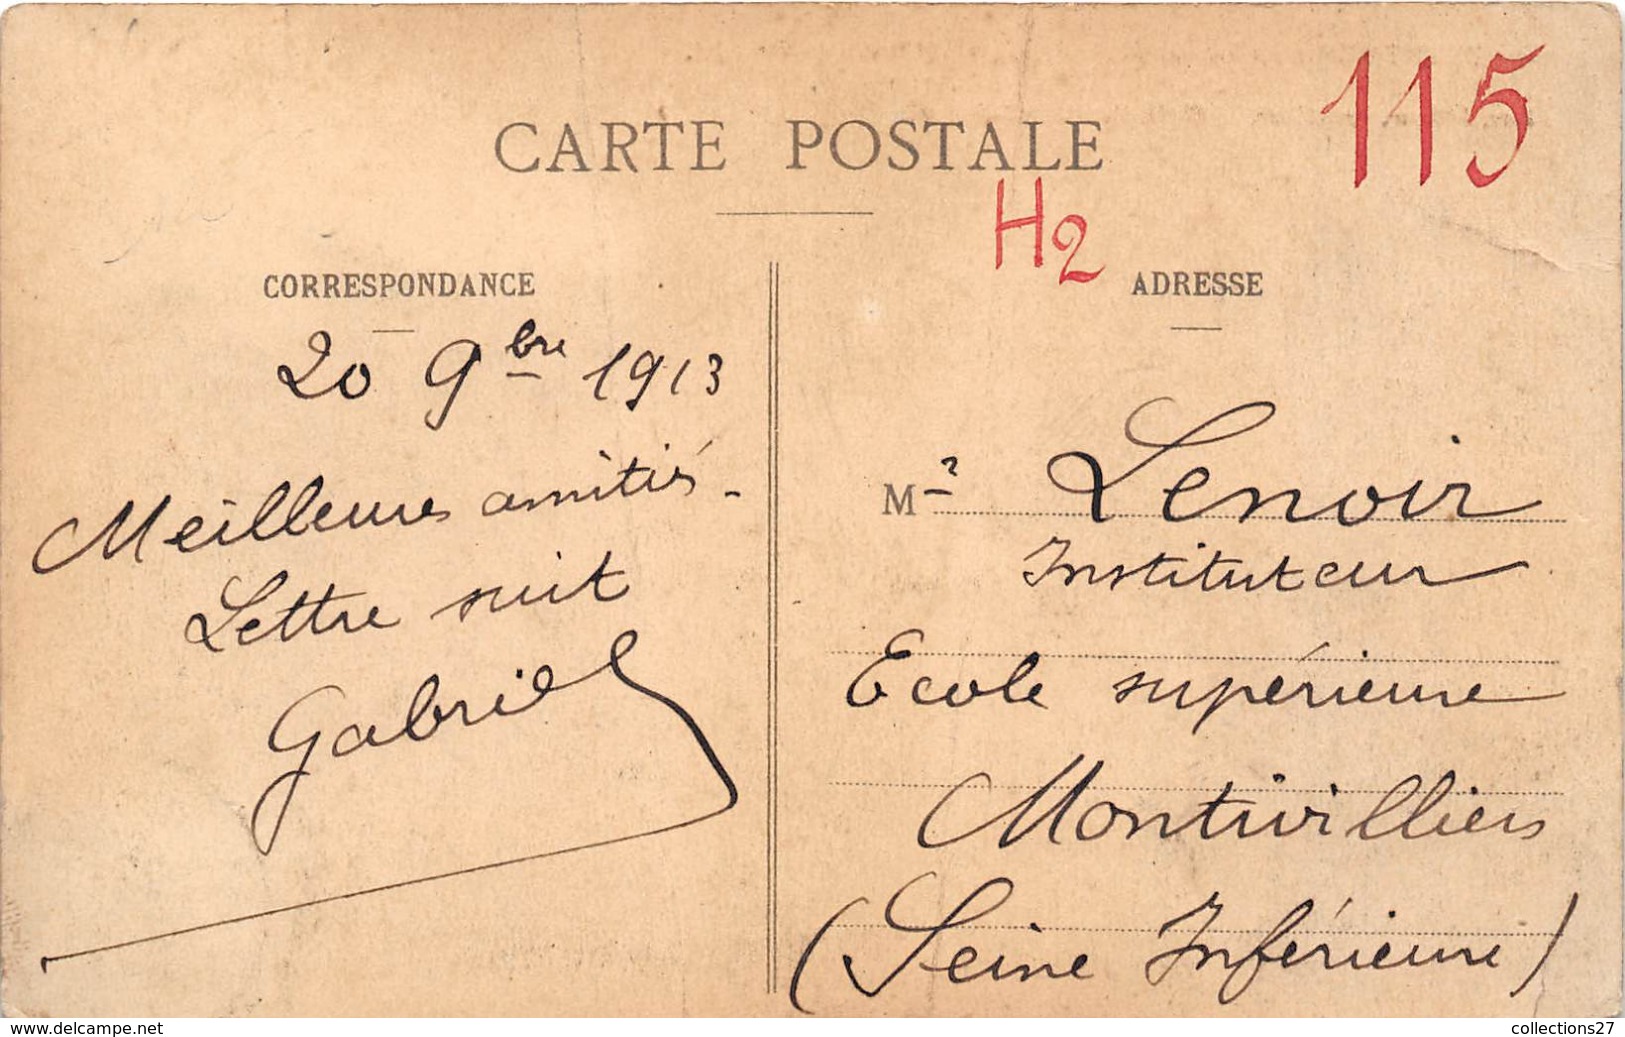 CARTE POSTALE
115
H2
CORRESPONDANCE
20 9bre 1913
Meilleures amitiés.
Lettre suit
Gabriel
ADRESSE
Mr Lenoir
Instituteur
Ecole supérieure
Montivilliers
(Seine Inférieure)
www.delcampe.net
collections27